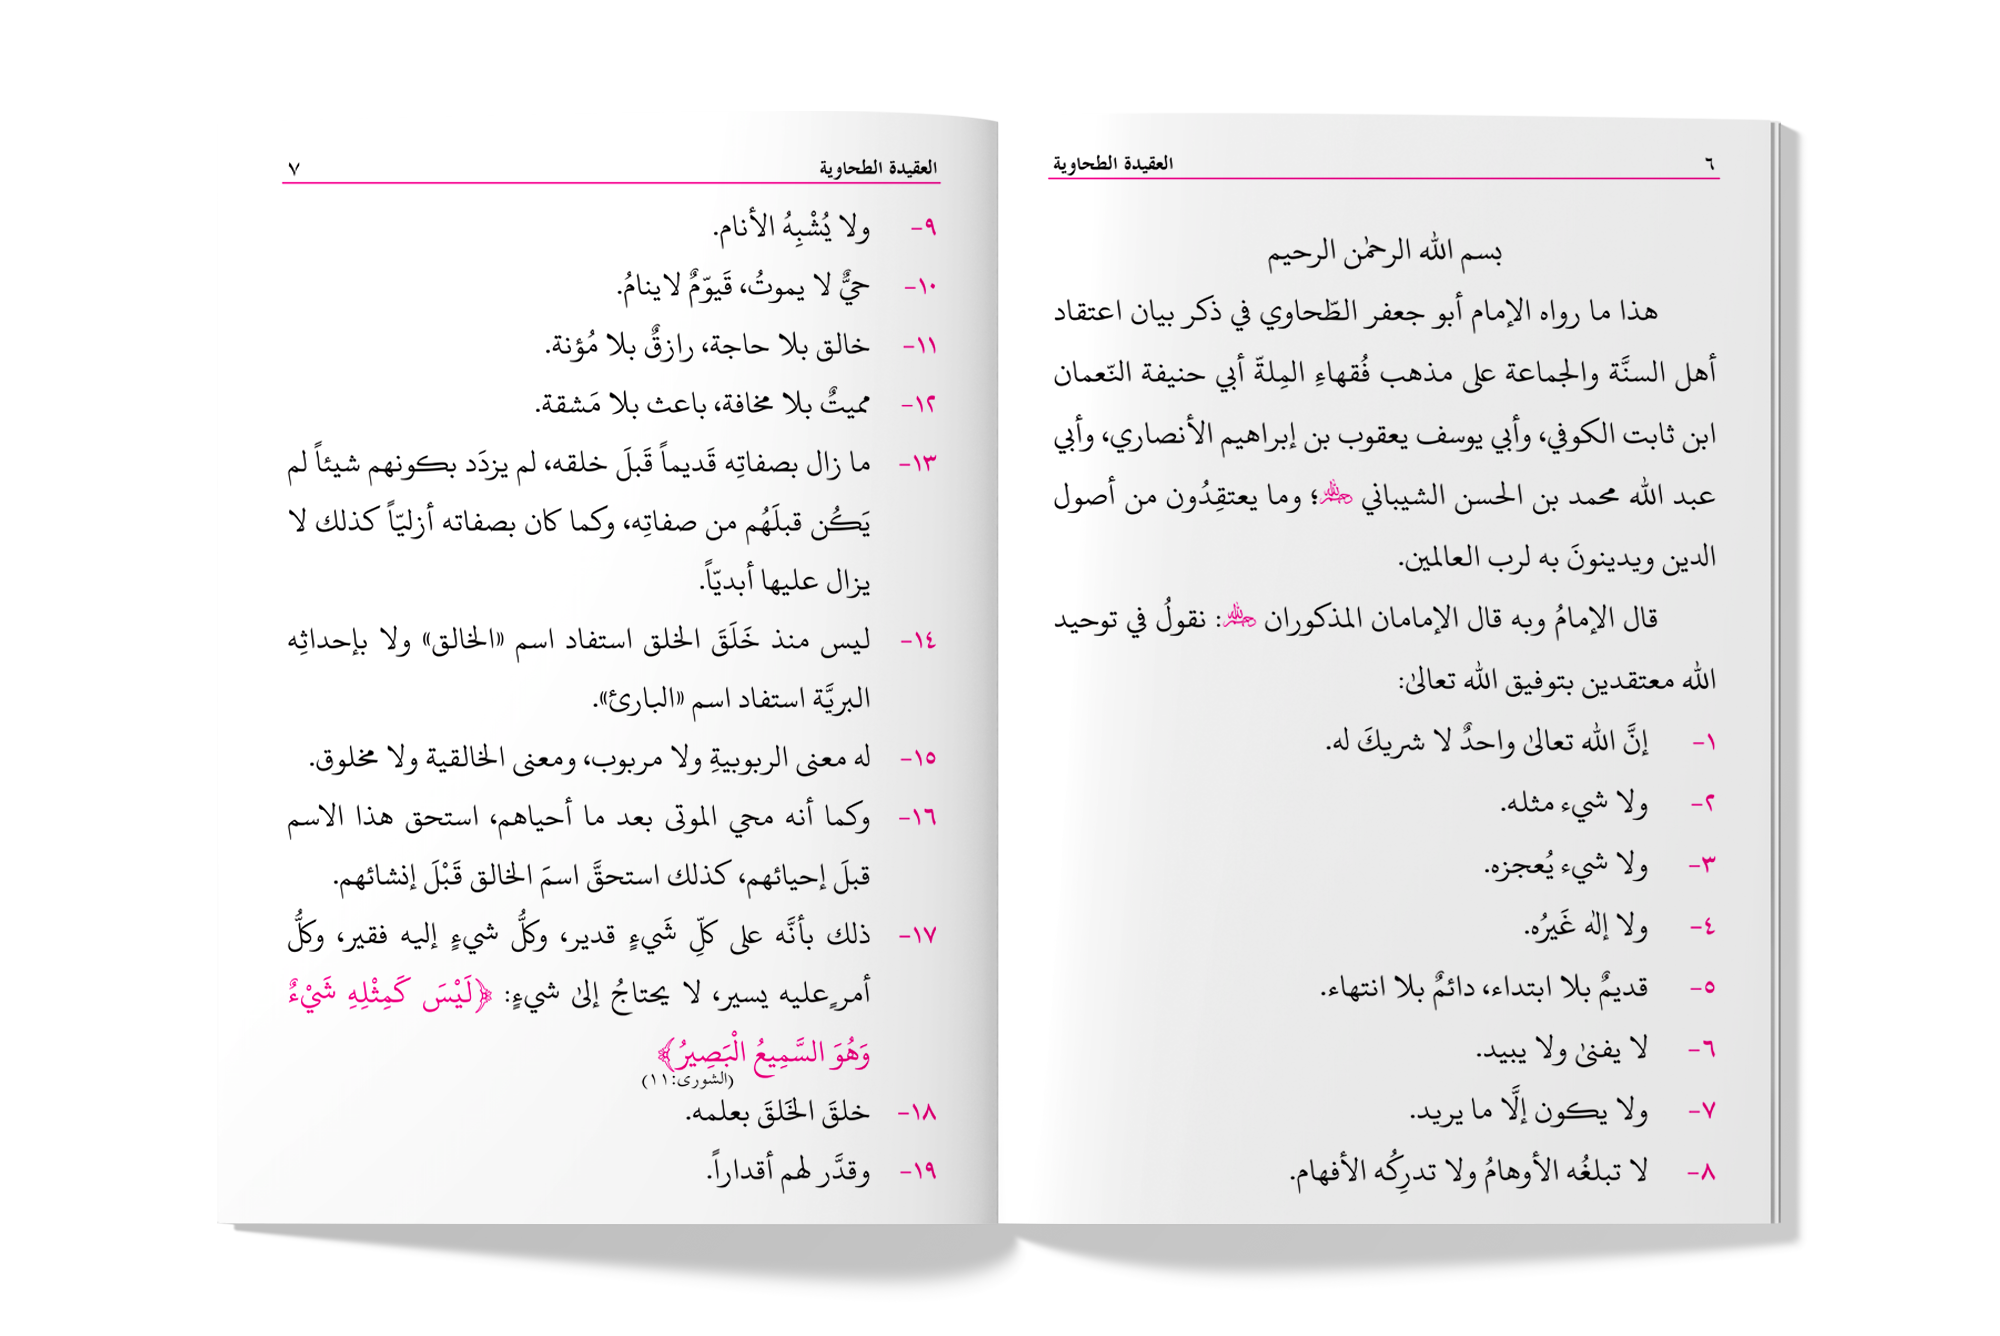 ٦ العقيدة الطحاوية
بسم الله الرحمٰن الرحيم
هذا ما رواه الإمام أبو جعفر الطّحاوي في ذكر بيان اعتقاد
أهل السنَّة والجماعة على مذهب فُقهاءِ المِلةّ أبي حنيفة النّعمان
ابن ثابت الكوفي، وأبي يوسف يعقوب بن إبراهيم الأنصاري، وأبي
عبد الله محمد بن الحسن الشيباني ؛ وما يعتقِدُون من أصول
الدين ويدينونَ به لرب العالمين.
قال الإمامُ وبه قال الإمامان المذكوران : نقولُ في توحيد
الله معتقدين بتوفيق الله تعالىٰ:
١- إنَّ الله تعالىٰ واحدٌ لا شريكَ له.
٢- ولا شيء مثله.
٣- ولا شيء يُعجزه.
٤- ولا إلٰه غَيرُه.
٥- قديمٌ بلا ابتداء، دائمٌ بلا انتهاء.
٦- لا يفنىٰ ولا يبيد.
٧- ولا يكون إلَّا ما يريد.
٨- لا تبلغُه الأوهامُ ولا تدرِكُه الأفهام.
العقيدة الطحاوية ٧
٩- ولا يُشْبِهُ الأنام.
١٠- حيٌّ لا يموتُ، قَيوّمٌ لاينامُ.
١١- خالق بلا حاجة، رازقٌ بلا مُؤنة.
١٢- مميتٌ بلا مخافة، باعث بلا مَشقة.
١٣- ما زال بصفاتِه قَديماً قَبلَ خلقه، لم يزدَد بكونهم شيئاً لم
يَكُن قبلَهُم من صفاتِه، وكما كان بصفاته أزليّاً كذلك لا
يزال عليها أبديّاً.
١٤- ليس منذ خَلَقَ الخلق استفاد اسم «الخالق» ولا بإحداثِه
البريَّة استفاد اسم «البارئ».
١٥- له معنى الربوبيةِ ولا مربوب، ومعنى الخالقية ولا مخلوق.
١٦- وكما أنه محي الموتى بعد ما أحياهم، استحق هذا الاسم
قبلَ إحيائهم، كذلك استحقَّ اسمَ الخالق قَبْلَ إنشائهم.
١٧- ذلك بأنَّه على كلِّ شَيءٍ قدير، وكلُّ شيءٍ إليه فقير، وكلُّ
أمرٍ عليه يسير، لا يحتاجُ إلىٰ شيءٍ: ﴿لَيْسَ كَمِثْلِهِ شَيْءٌ
وَهُوَ السَّمِيعُ الْبَصِيرُ﴾
(الشورى:١١)
١٨- خلقَ الخَلقَ بعلمه.
١٩- وقدَّر لهم أقداراً.